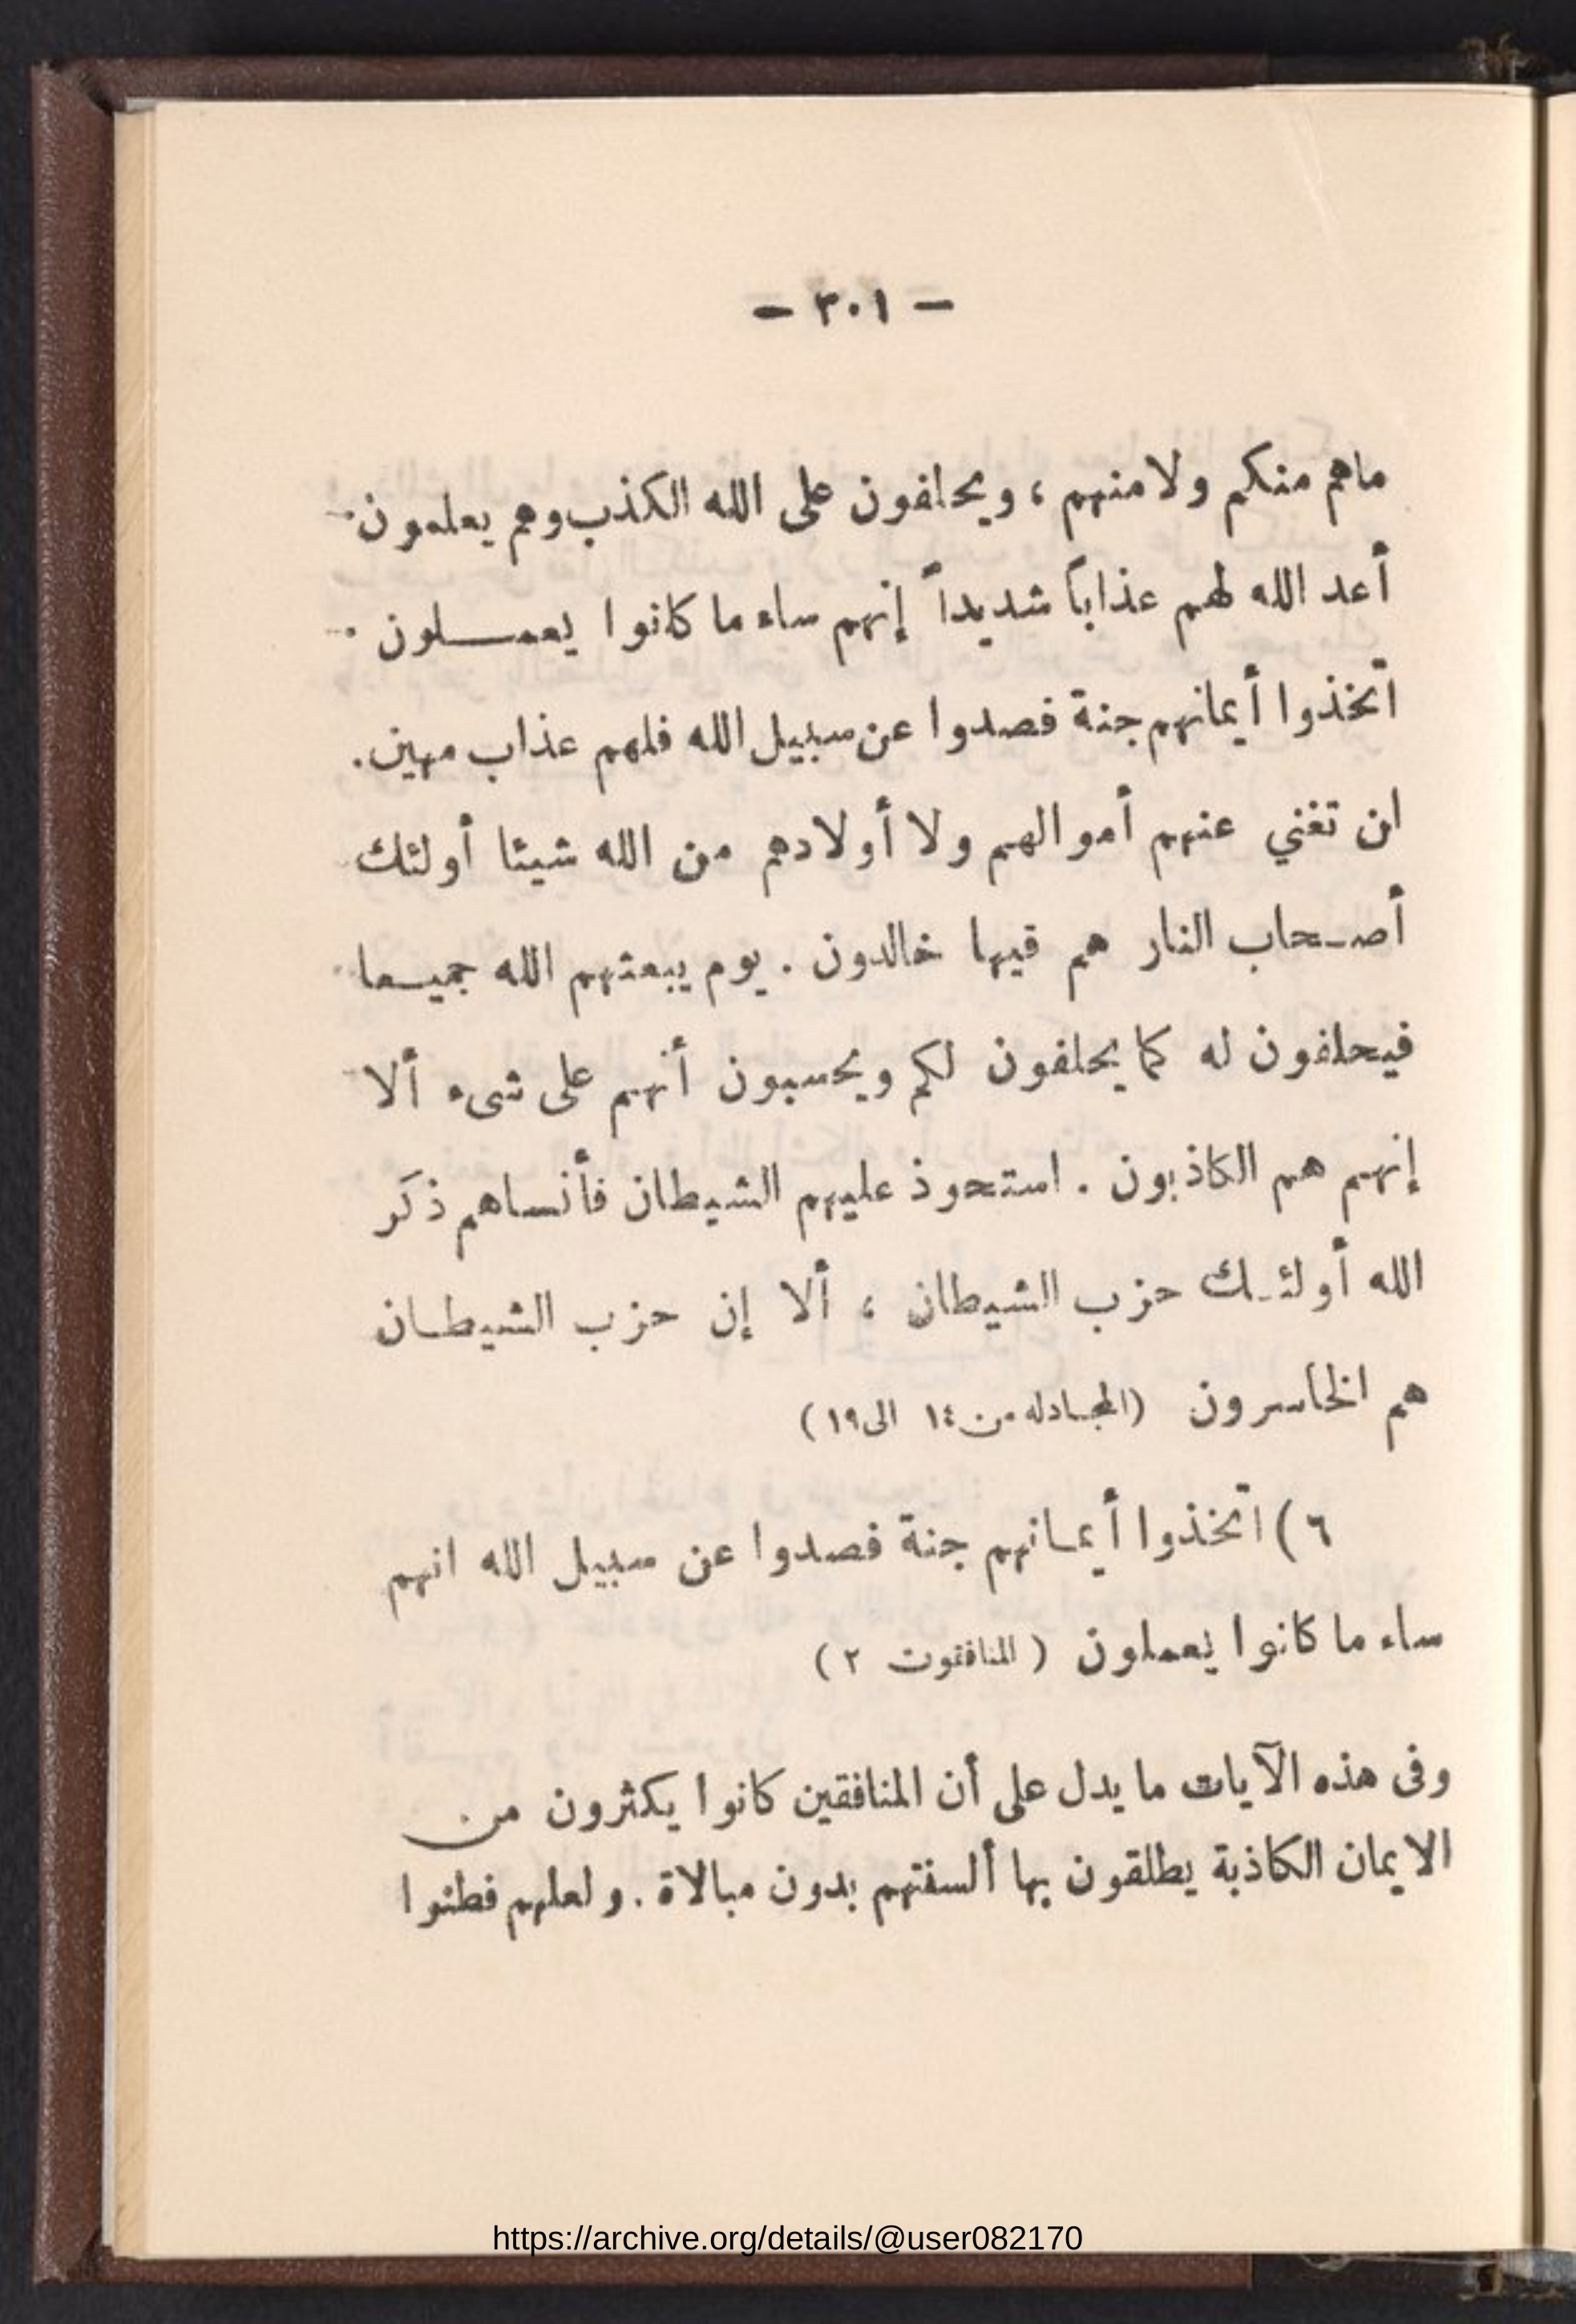 — ٣٠١ —
ماهم منكم ولا منهم ، ويحلفون على الله الكذب وهم يعلمون .
أعد الله لهم عذاباً شديداً إنهم ساء ما كانوا يعمـــلون .
اتخذوا أيمانهم جنة فصدوا عن سبيل الله فلهم عذاب مهين .
ان تغني عنهم أموالهم ولا أولادهم من الله شيئا أولئك
أصـحاب النار هم فيها خالدون . يوم يبعثهم الله جميـعا
فيحلفون له كما يحلفون لكم ويحسبون أنهم على شىء ألا
إنهم هم الكاذبون . استحوذ عليهم الشيطان فأنساهم ذكر
الله أولئـك حزب الشيطان ، ألا إن حزب الشيطـان
هم الخاسرون (المجـادله من ١٤ الى ١٩)
٦) اتخذوا أيمـانهم جنة فصدوا عن سبيل الله انهم
ساء ما كانوا يعملون ( المنافقوت ٢ )
وفى هذه الآيات ما يدل على أن المنافقين كانوا يكثرون من
الايمان الكاذبة يطلقون بها ألسنتهم بدون مبالاة . ولعلهم فطنوا
https://archive.org/details/@user082170